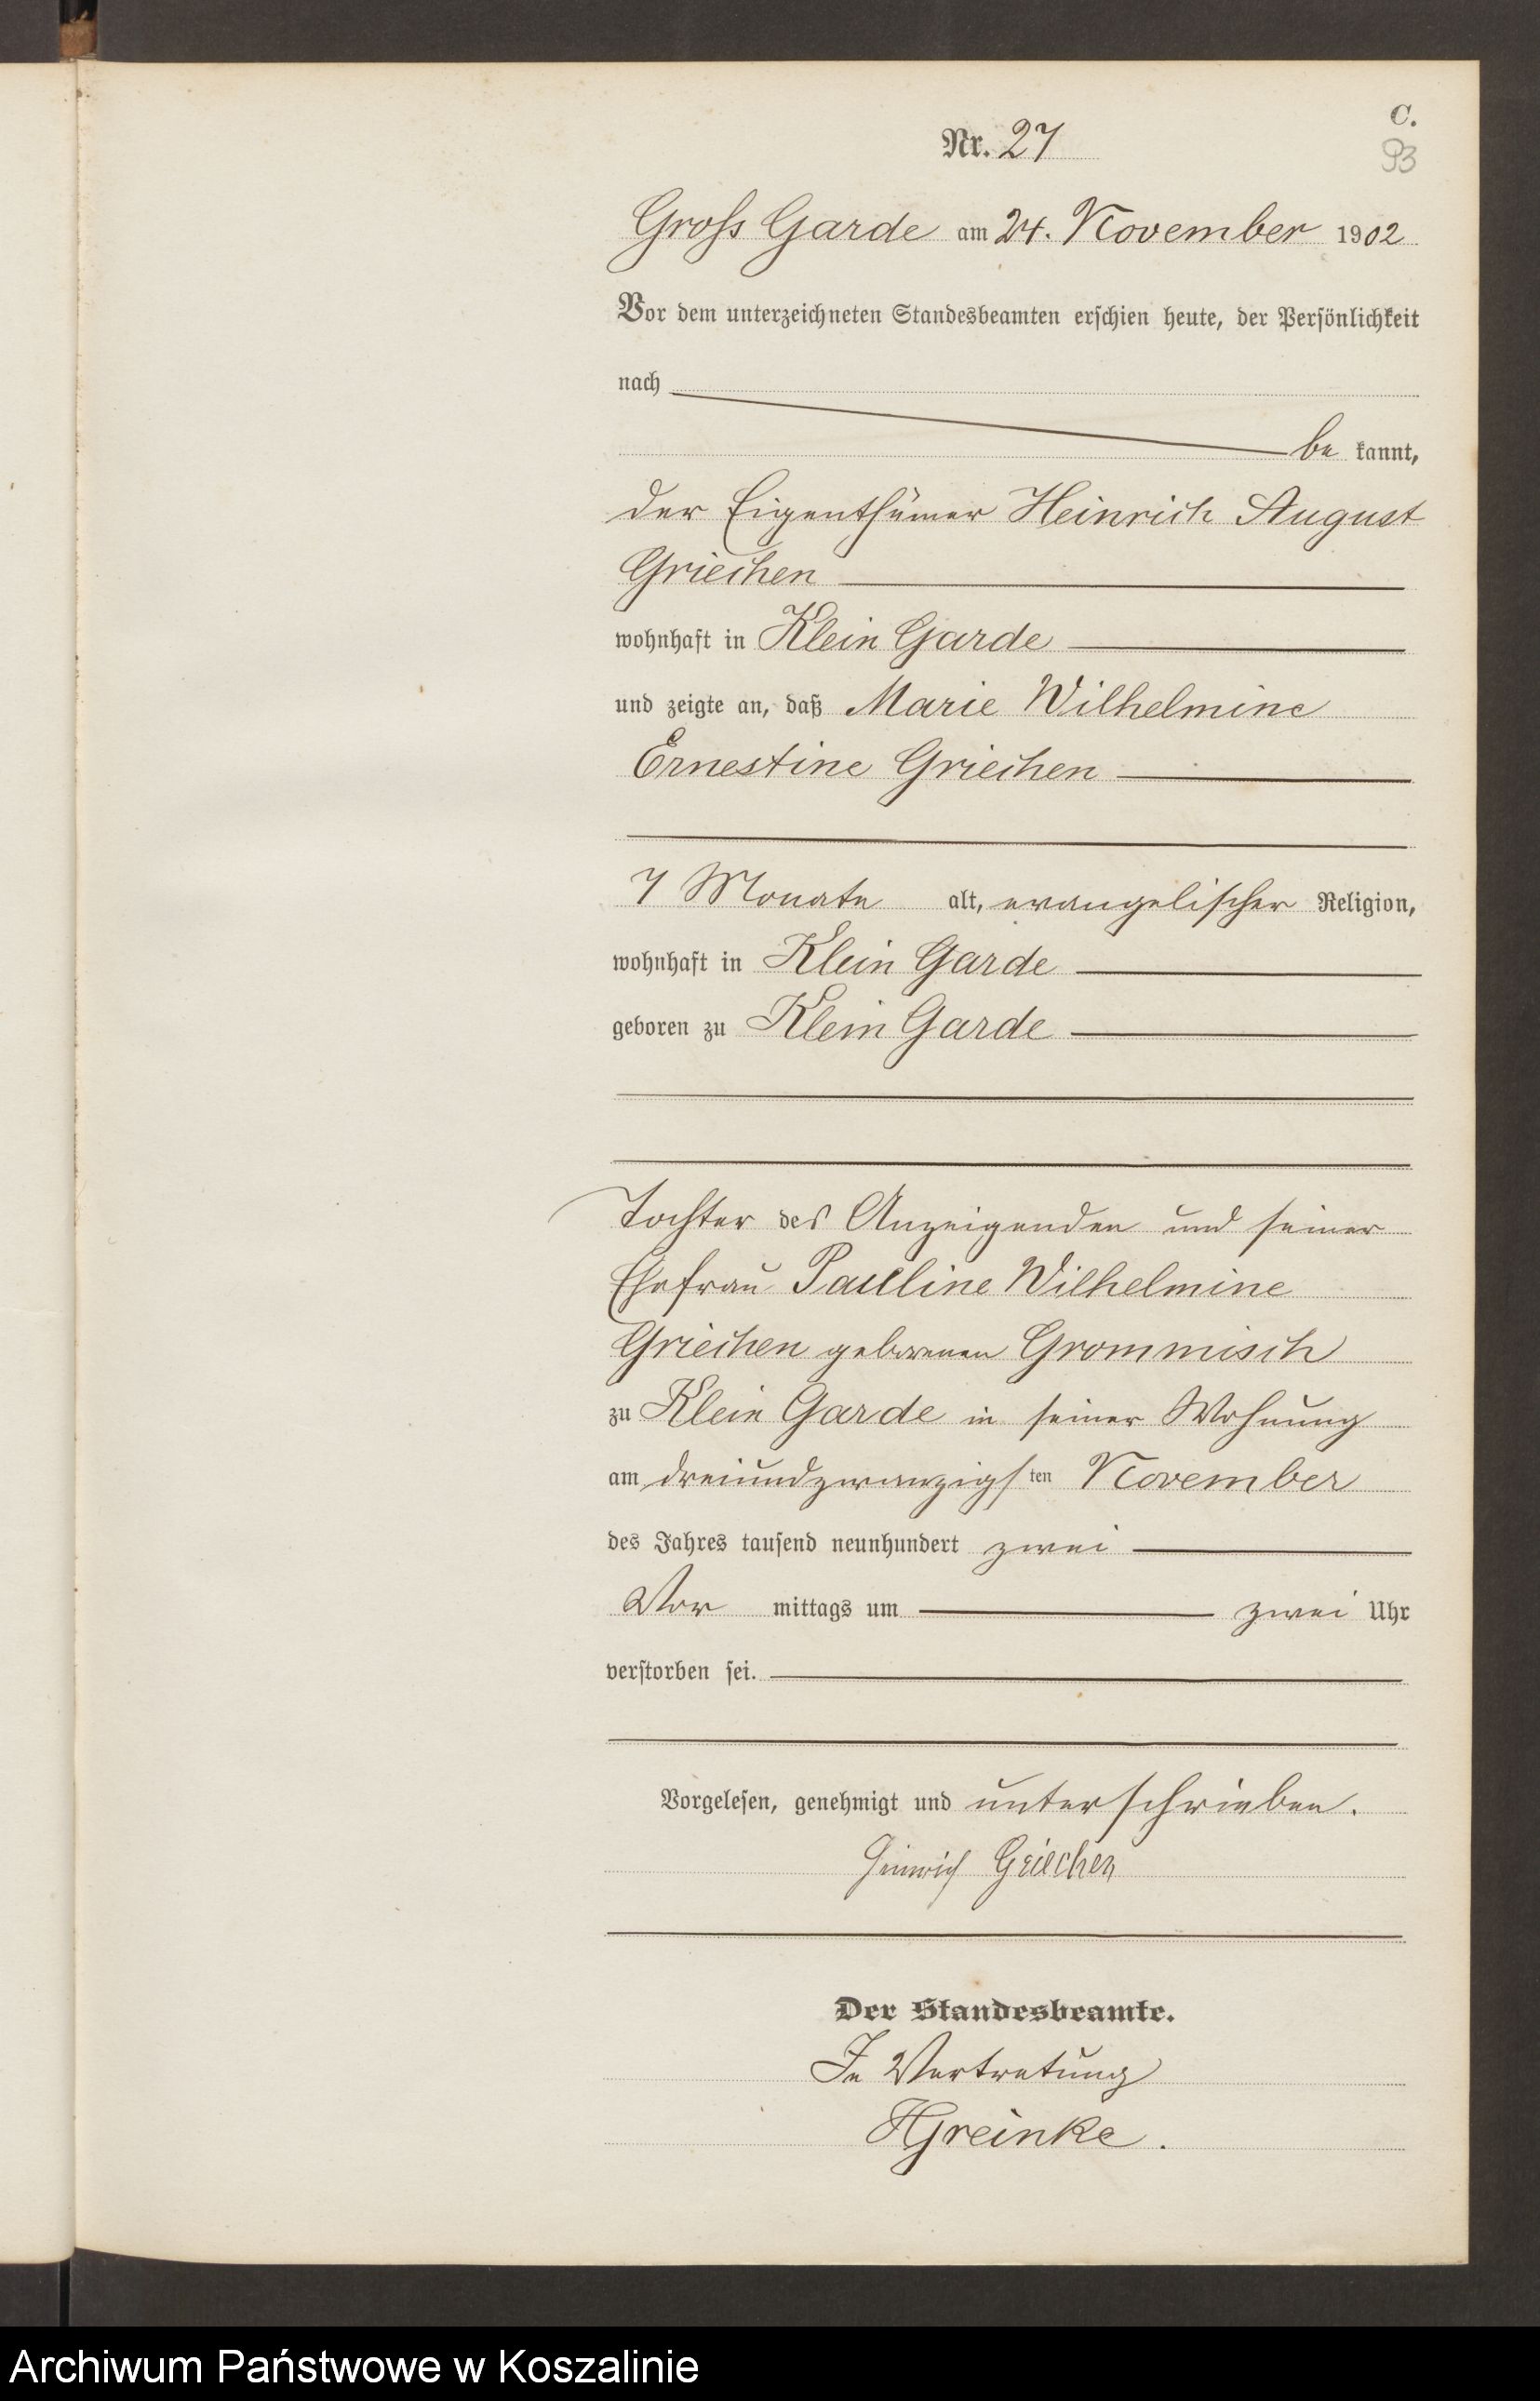 C.
Nr. 27
93
Gross Garde am 24. November 1902
Vor dem unterzeichneten Standesbeamten erschien heute, der Persönlichkeit
nach
be kannt,
der Eigenthümer Heinrich August
Griechen
wohnhaft in Klein Garde
und zeigte an, daß Marie Wilhelmine
Ernestine Griechen
7 Monate alt, evangelischer Religion,
wohnhaft in Klein Garde
geboren zu Klein Garde
Tochter des Anzeigenden und seiner
Ehefrau Pauline Wilhelmine
Griechen geborenen Grommisch
zu Klein Garde in seiner Wohnung
am dreiundzwanzigsten November
des Jahres tausend neunhundert zwei
Vor mittags um zwei Uhr
verstorben sei.
Vorgelesen, genehmigt und unterschrieben.
Heinrich Griechen
Der Standesbeamte.
In Vertretung
HGreinke.
Archiwum Państwowe w Koszalinie